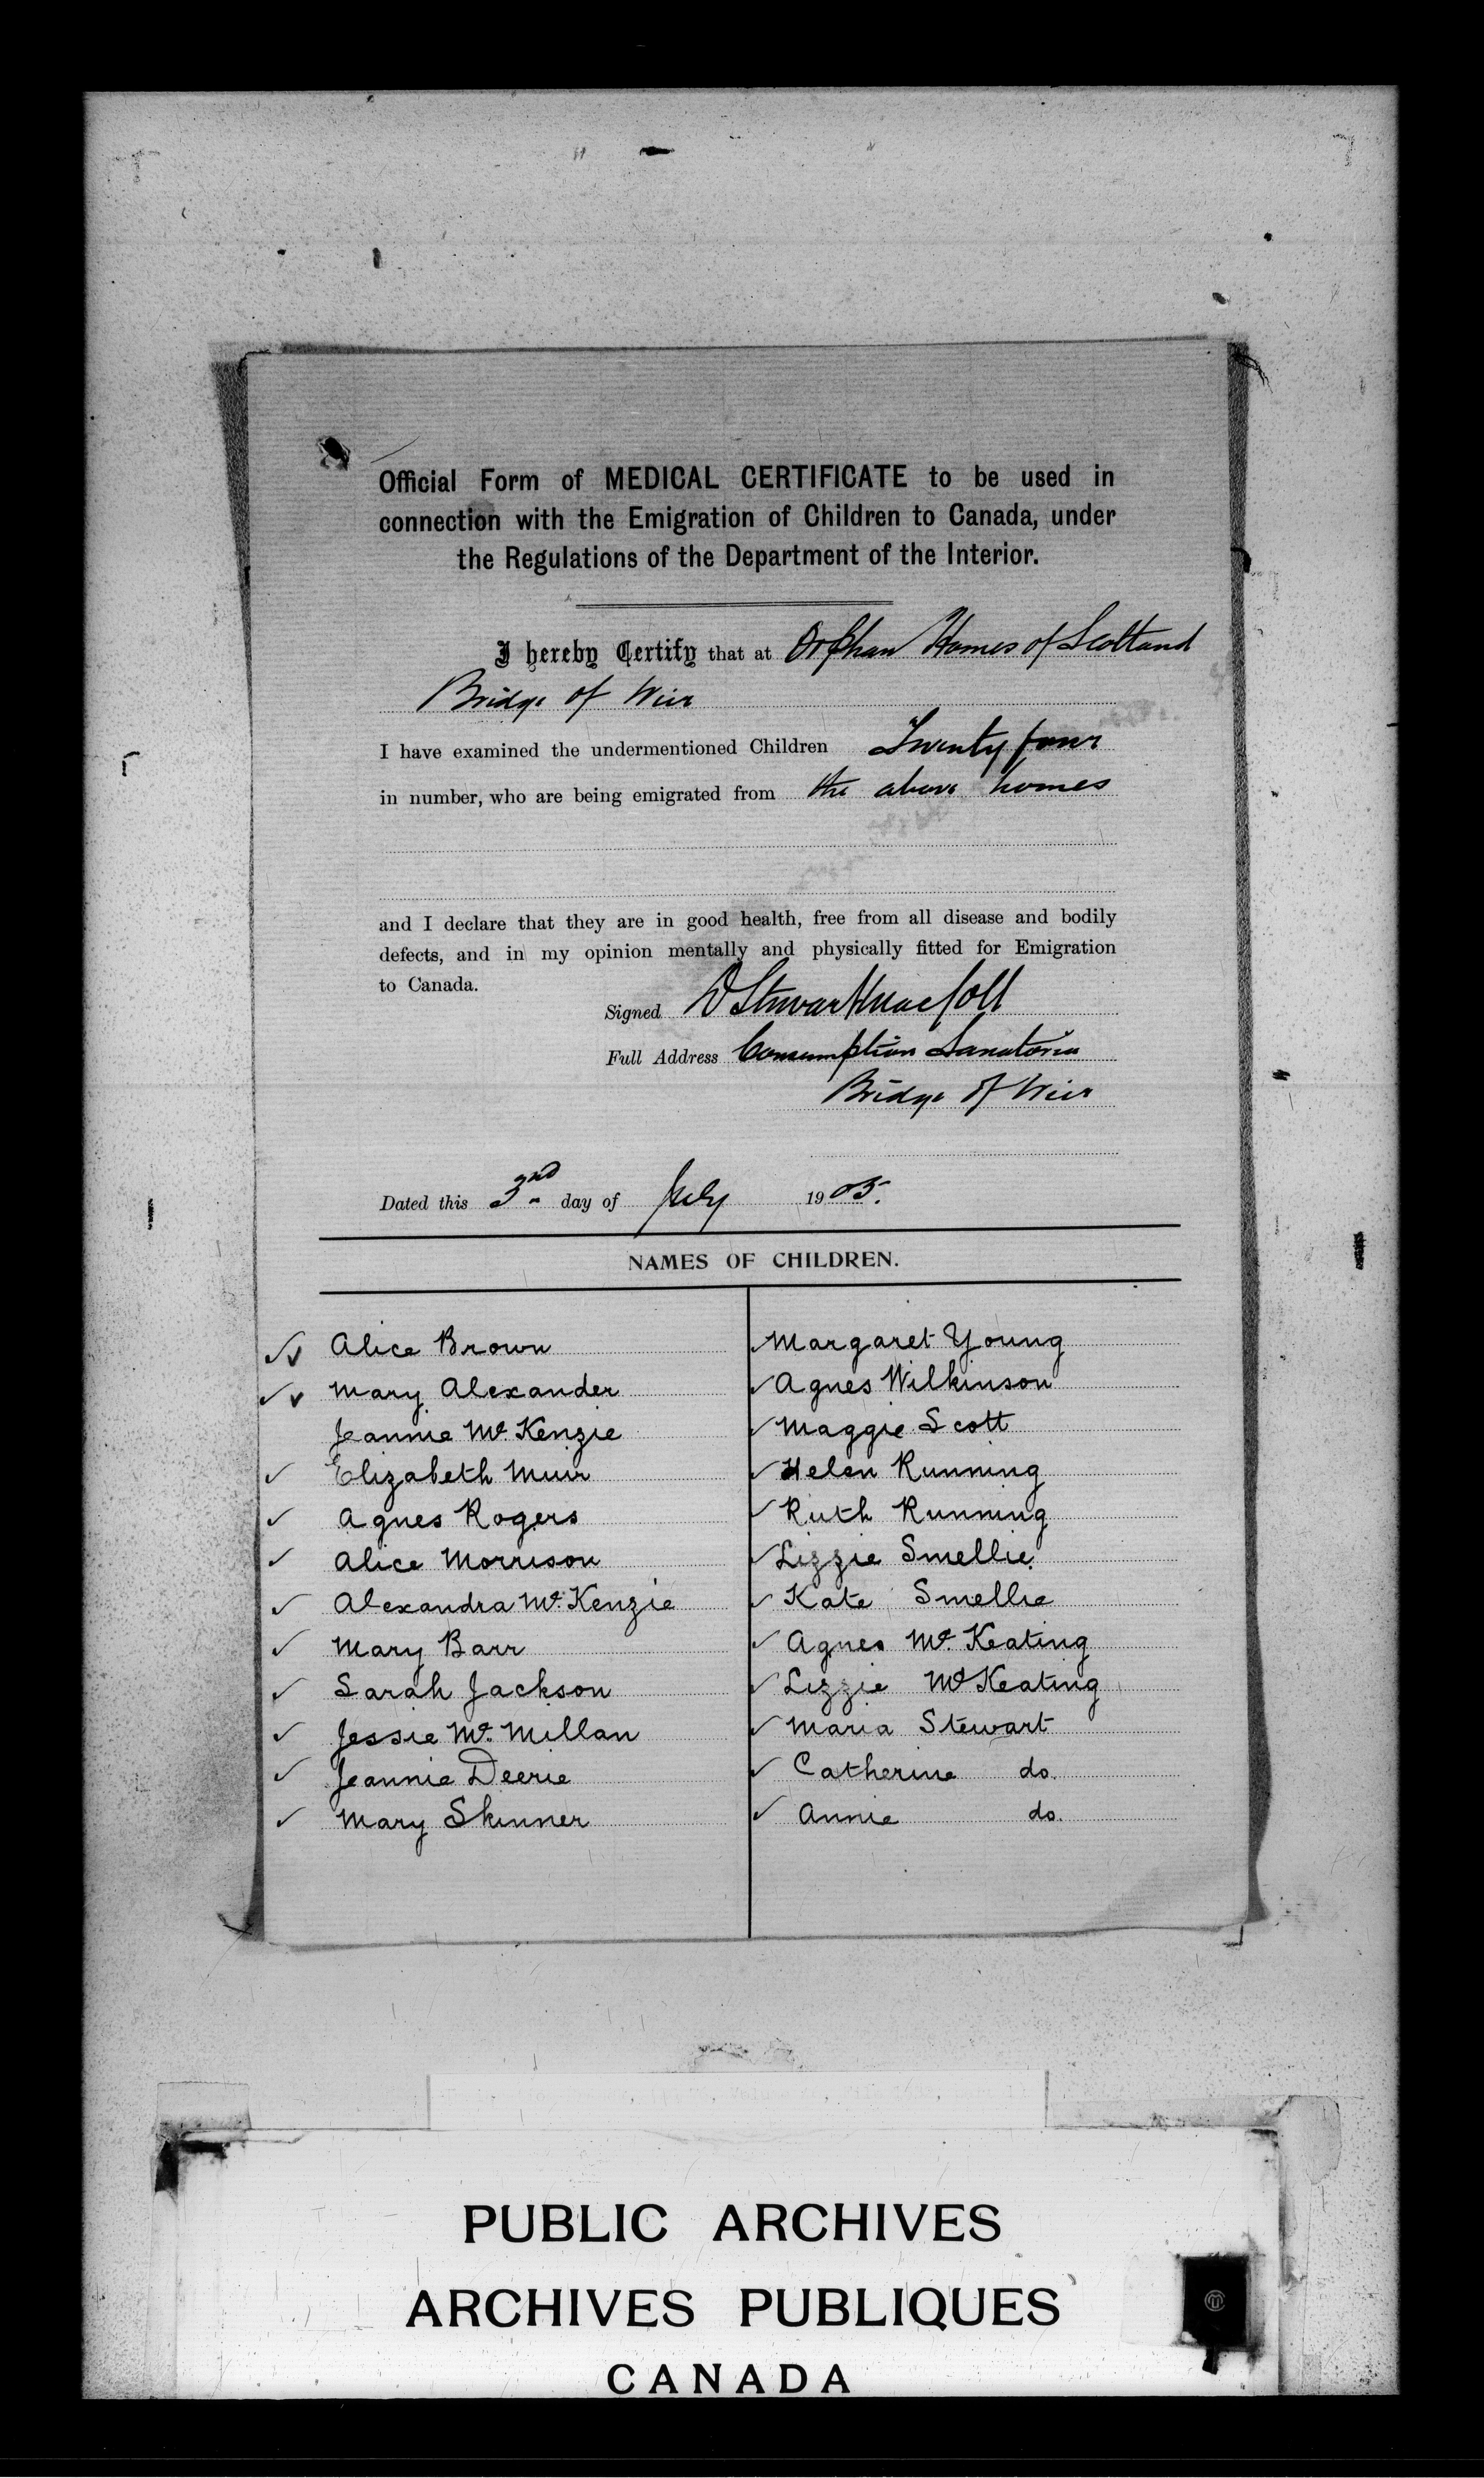 Official Form of MEDICAL CERTIFICATE to be used in
connection with the Emigration of Children to Canada, under
the Regulations of the Department of the Interior.
I hereby Certify that at Orphan Homes of Scotland
Bridge of Weir
I have examined the undermentioned Children Twenty four
in number, who are being emigrated from the above homes
and I declare that they are in good health, free from all disease and bodily
defects, and in my opinion mentally and physically fitted for Emigration
to Canada.
Signed D Stewart MacColl
Full Address Consumption Sanatoria
Bridge of Weir
Dated this 3rd day of July 1905.
NAMES OF CHILDREN.
Alice Brown
Mary Alexander
Jeannie Mc Kenzie
Elizabeth Muir
Agnes Rogers
Alice Morrison
Alexandra Mc Kenzie
Mary Barr
Sarah Jackson
Jessie Mc Millan
Jeannie Deerie
Mary Skinner
Margaret Young
Agnes Wilkinson
Maggie Scott
Helen Running
Ruth Running
Lizzie Smellie
Kate Smellie
Agnes Mc Keating
Lizzie Mc Keating
Maria Stewart
Catherine do.
Annie do.
PUBLIC ARCHIVES
ARCHIVES PUBLIQUES
CANADA